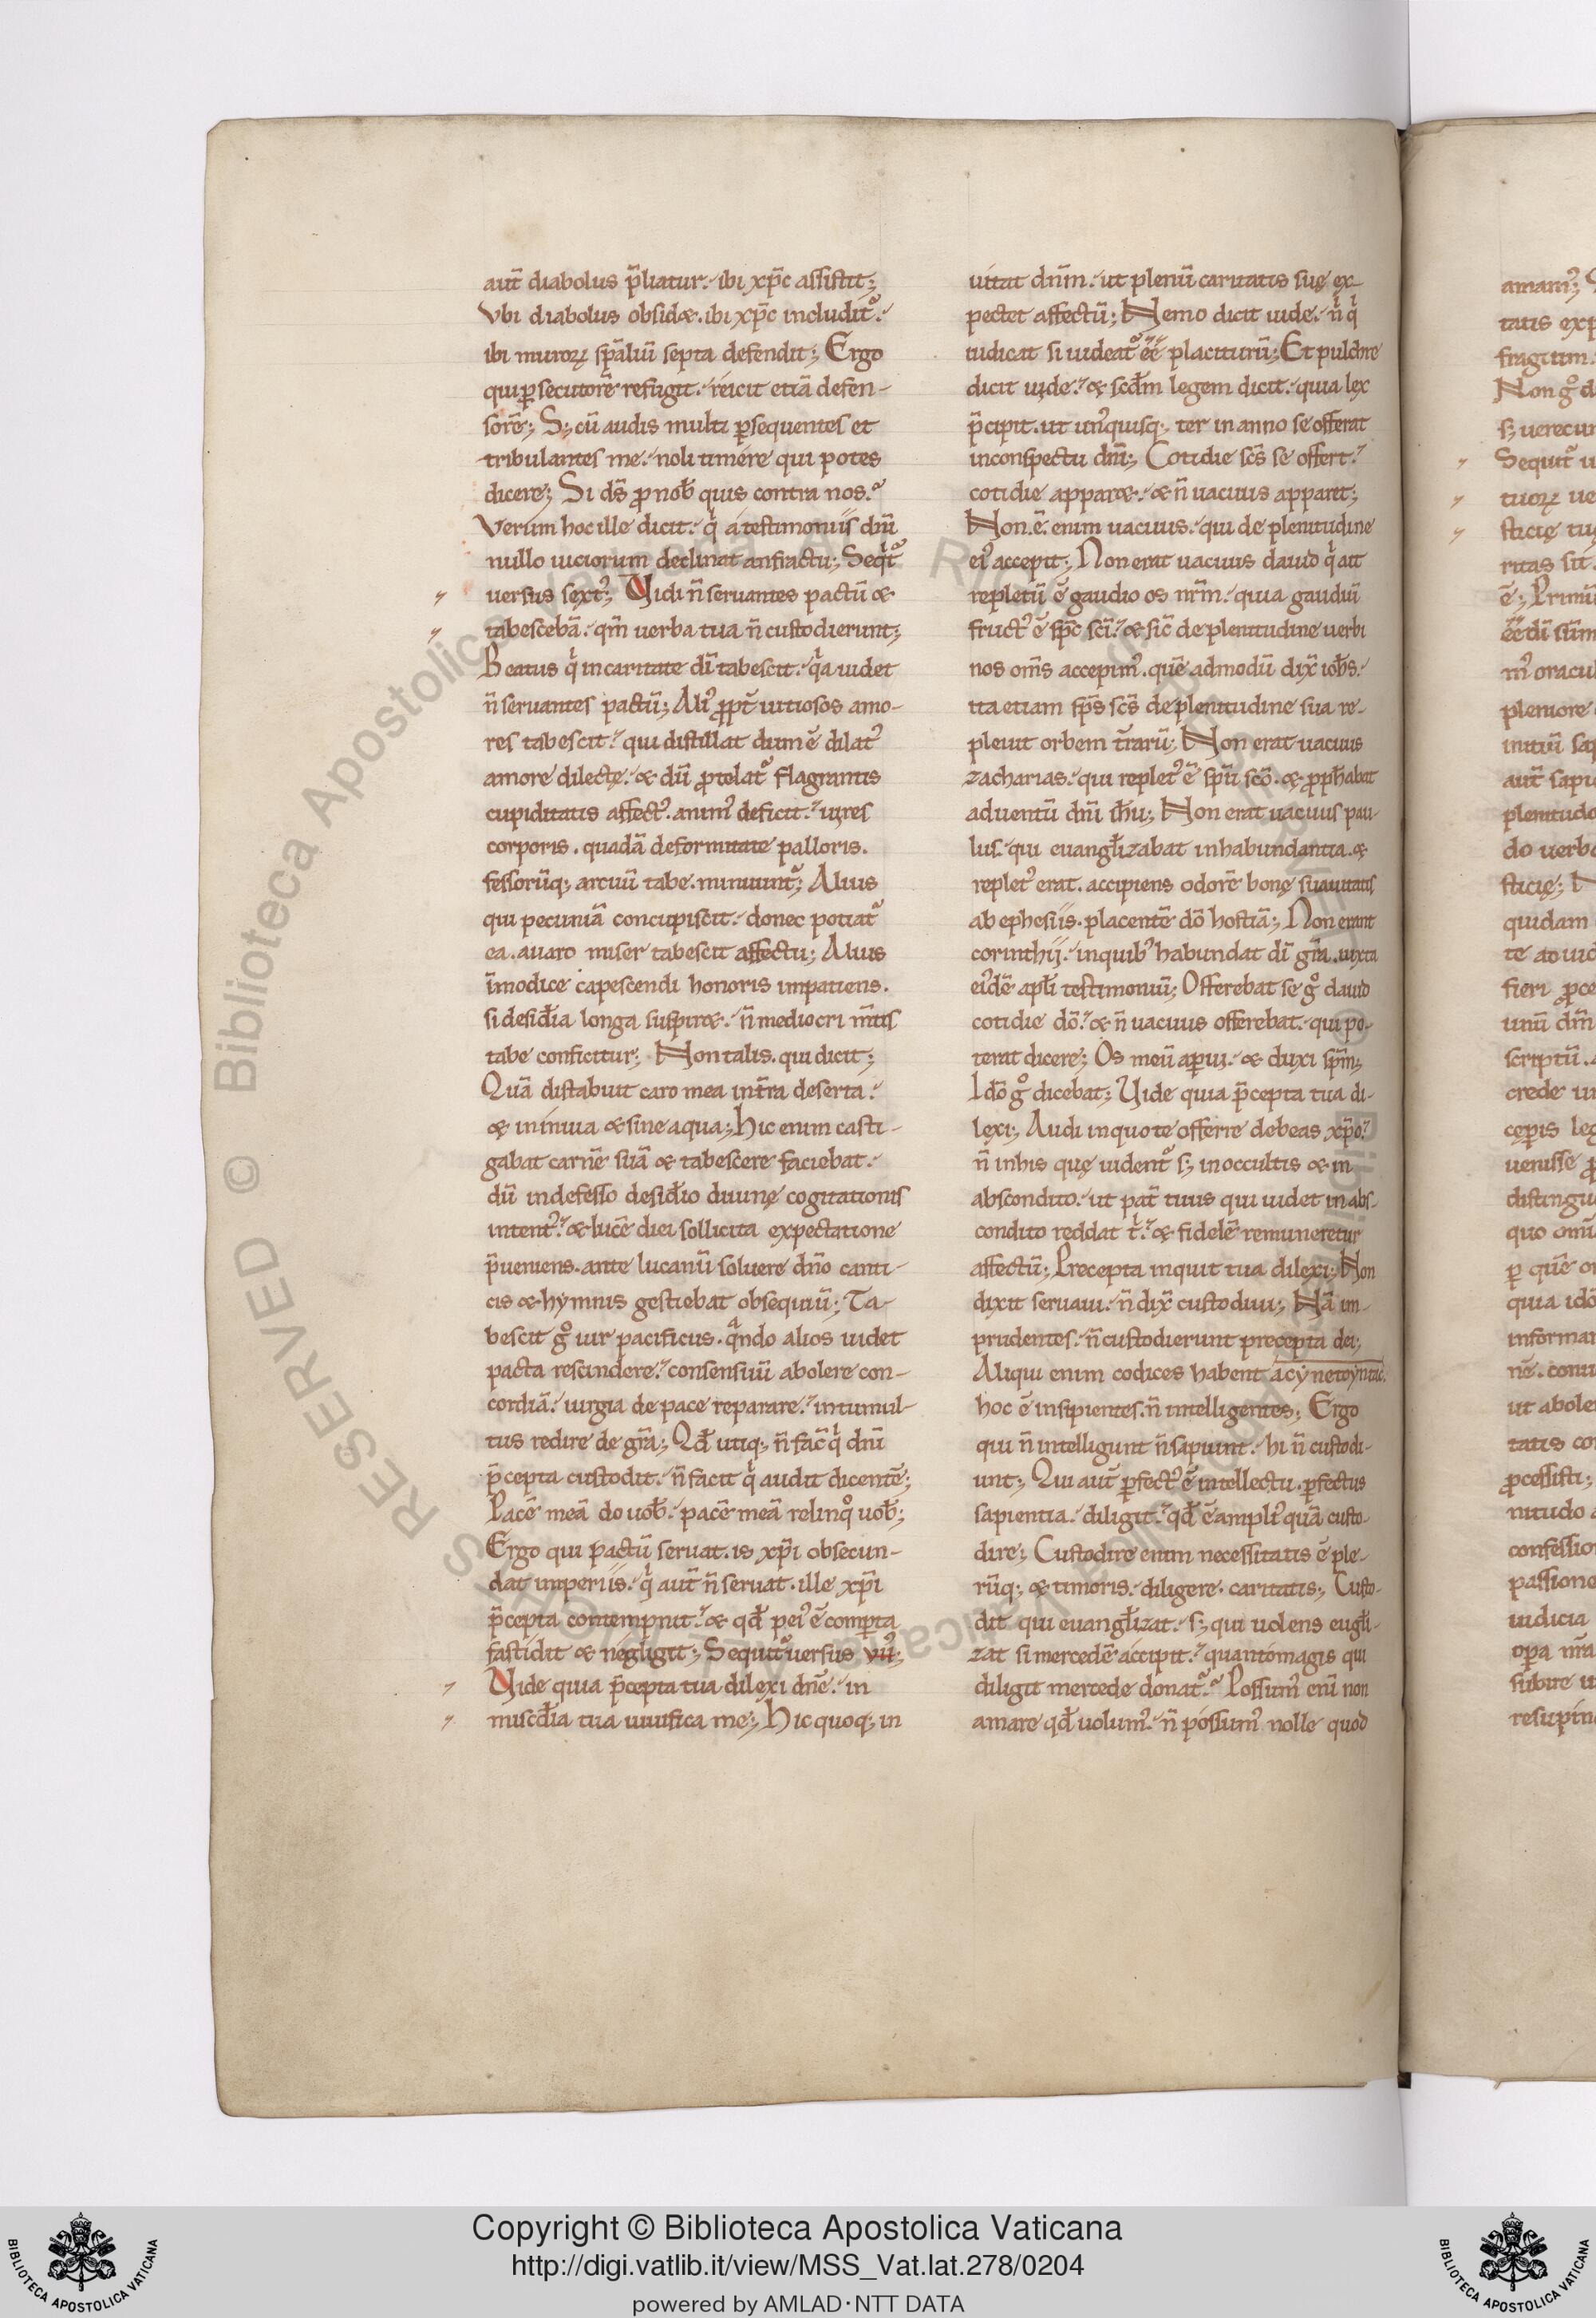 aut̄ diabolus p̄liatur. ibi xp̄c assistit;
Vbi diabolus obsidet. ibi xp̄c includit᷑.
ibi muroꝝ sp̄aliū septa defendit; Ergo
qui ꝑsecutorē refugit. reicit etiā defen-
sorē; S; cū audis multi ꝑsequentes et
tribulantes me. noli timere qui potes
dicere; Si ds̄ ꝓ nob̄ quis contra nos.
Verum hoc ille dicit. q̍ a testimoniis dnī
nullo uiciorum declinat anfractu; Seqit᷑
uersus sextꝰ; Vidi n̄ seruantes pactū &
tabescebā. qm̄ uerba tua n̄ custodierunt;
Beatus q̍ in caritate dī tabescit. q̍a uidet
n̄ seruantes pactū; Aliꝰ ꝓpt̄ uitiosos amo-
res tabescit. qui distillat dum ē dilatꝰ
amore dilectę. & dū ꝓtelat᷑ flagrantis
cupiditatis affectꝰ. animꝰ deficit. uires
corporis. quadā deformitate palloris.
fessorūq; artuū tabe. minuunt᷑; Alius
qui pecuniā concupiscit. donec potiat᷑
ea. auaro miser tabescit affectu; Alius
īmodice capescendi honoris impatiens.
si desid̄ia longa suspiret. n̄ mediocri m̄tis
tabe conficitur; Non talis. qui dicit;
Quā distabuit caro mea in t̄ra deserta.
& in inuia & sine aqua; hic enim casti-
gabat carnē suā & tabescere faciebat.
dū indefesso desid̄io diuinę cogitationis
intentꝰ. & lucē diei sollicita expectatione
p̄ueniens. ante lucanū soluere dn̄o canti-
cis & hymnis gestiebat obsequiū; Ta-
bescit gͦ uir pacificus. qᵃndo alios uidet
pacta rescindere. consensiuū abolere con-
cordiā. iurgia de pace reparare. in tumul-
tus redire de gr̄a; Qd̄ utiq; n̄ fac̄ q̍ dnī
p̄cepta custodit. n̄ facit q̍ audit dicentē;
Pacē meā do uob̄. pacē meā relinqͦ uob̄;
Ergo qui pactū seruat. is xp̄i obsecun-
dat imperiis. q̍ aut̄ n̄ seruat. ille xp̄i
p̄cepta contempnit. & qd̄ peiꝰ ē comꝑta
fastidit & negligit; Sequit᷑ uersus viiꝰ;
Vide quia p̄cepta tua dilexi dnē. in
miscd̄ia tua uiuifica me; Hic quoq; in
uitat dnm̄. ut plenū caritatis suę ex-
pectet affectū; Nemo dicit uide. n̄ q̍
iudicat si uideat᷑ eē placiturū; Et pulchre
dicit uide. & scd̄m legem dicit. quia lex
p̄cipit. ut unꝰquisq; ter in anno se offerat
in conspectu dnī; Cotidie scs̄ se offert.
cotidie apparet. & n̄ uacuus apparet;
Non ē enim uacuus. qui de plenitudine
eiꝰ accepit; Non erat uacuus dauid q̍ ait
repletū ē gaudio os nr̄m. quia gaudiū
fructꝰ ē sp̄c scī. & sic̄ de plenitudine uerbi
nos om̄s accepimꝰ. quē admodū dix̄ iohs̄.
ita etiam sp̄s scs̄ de plenitudine sua re-
pleuit orbem t̄rarū; Non erat uacuus
zacharias. qui repletꝰ ē sp̄u scō. & ꝓph̄abat
aduentū dnī ih̄u; Non erat uacuus pau-
lus. qui euangl̄izabat in habundantia. &
repletꝰ erat. accipiens odorē bonę suauitatis
ab ephesiis. placentē dō hostiā; Non erant
corinthij. in quibꝰ habundat dī gr̄a. iuxta
eiꝰdē apl̄i testimoniū; Offerebat se gͦ dauid
cotidie dō. & n̄ uacuus offerebat. qui po-
terat dicere; Os meū aꝑui. & duxi sp̄m;
Idō gͦ dicebat; Vide quia p̄cepta tua di-
lexi; Audi in quo te offerre debeas xp̄o.
n̄ in his quę uident᷑ s; in occultis & in
abscondito. ut pat̄ tuus qui uidet in abs-
condito reddat t̍. & fidelē remuneretur
affectū; Precepta inquit tua dilexi; Non
dixit seruaui. n̄ dix̄ custodiui; Nā im-
prudentes. n̄ custodierunt precepta dei;
Aliqui enim codices habent acynetoyntac.
hoc ē insipientes. n̄ intelligentes; Ergo
qui n̄ intelligunt n̄ sapiunt. hi n̄ custodi-
unt; Qui aut̄ ꝑfectꝰ ē intellectu. ꝑfectus
sapientia. diligit. qd̄ ē ampliꝰ quā custo-
dire; Custodire enim necessitatis ē ple-
rūq; & timoris. diligere. caritatis; Custo-
dit qui euangl̄izat. s; qui uolens eugl̄i-
zat si mercedē accipit. quanto magis qui
diligit mercede donat᷑. Possumꝰ enī non
amare qd̄ uolumꝰ. n̄ possumꝰ nolle quod
Copyright © Biblioteca Apostolica Vaticana
http://digi.vatlib.it/view/MSS_Vat.lat.278/0204
powered by AMLAD·NTT DATA